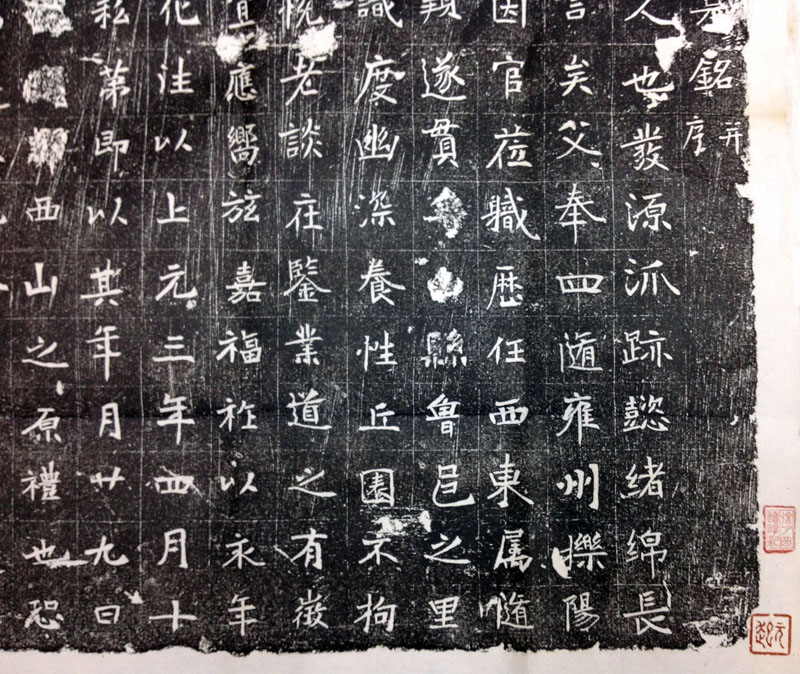 銘并序
人也發源派跡懿緒綿長
言矣父奉四隨雍州櫟陽
因官莅職歷任西東属隨
遂貫山縣魯邑之里
識度幽深養性丘園不拘
悅老談庄鑒業道之有徵
宜應嚮於嘉福祚以永年
化往以上元三年四月十
私第即以其年月廿九日
西山之原禮也恐